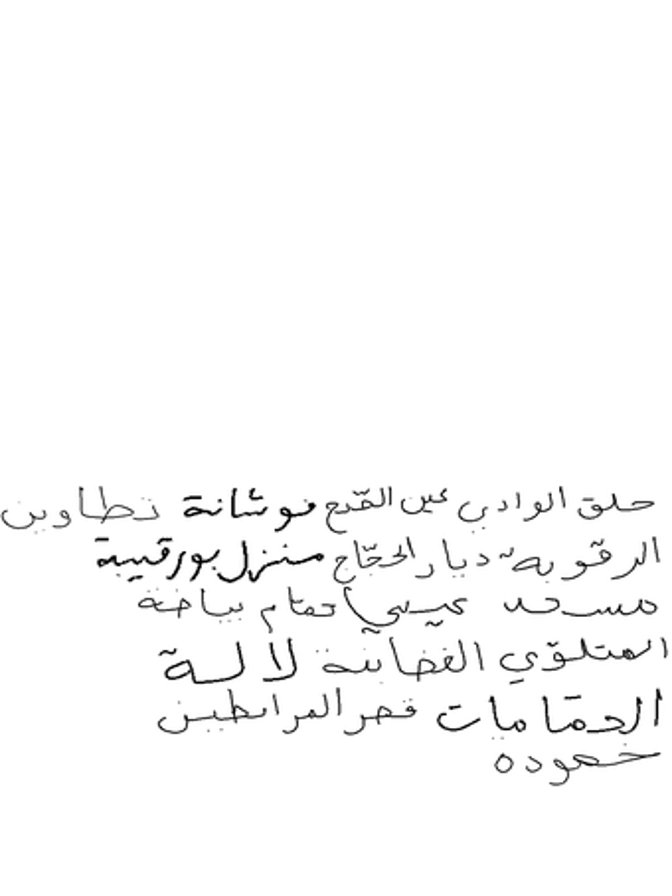 حلق الوادي عين القمح فوشانة تطاوين
الرقوبة ديار الحجّاج منزل بورقيبة
مسعد عيسى حمّام بياضة
المتلوّي الغضابنة لالة
الحمّامات قصر المرابطين